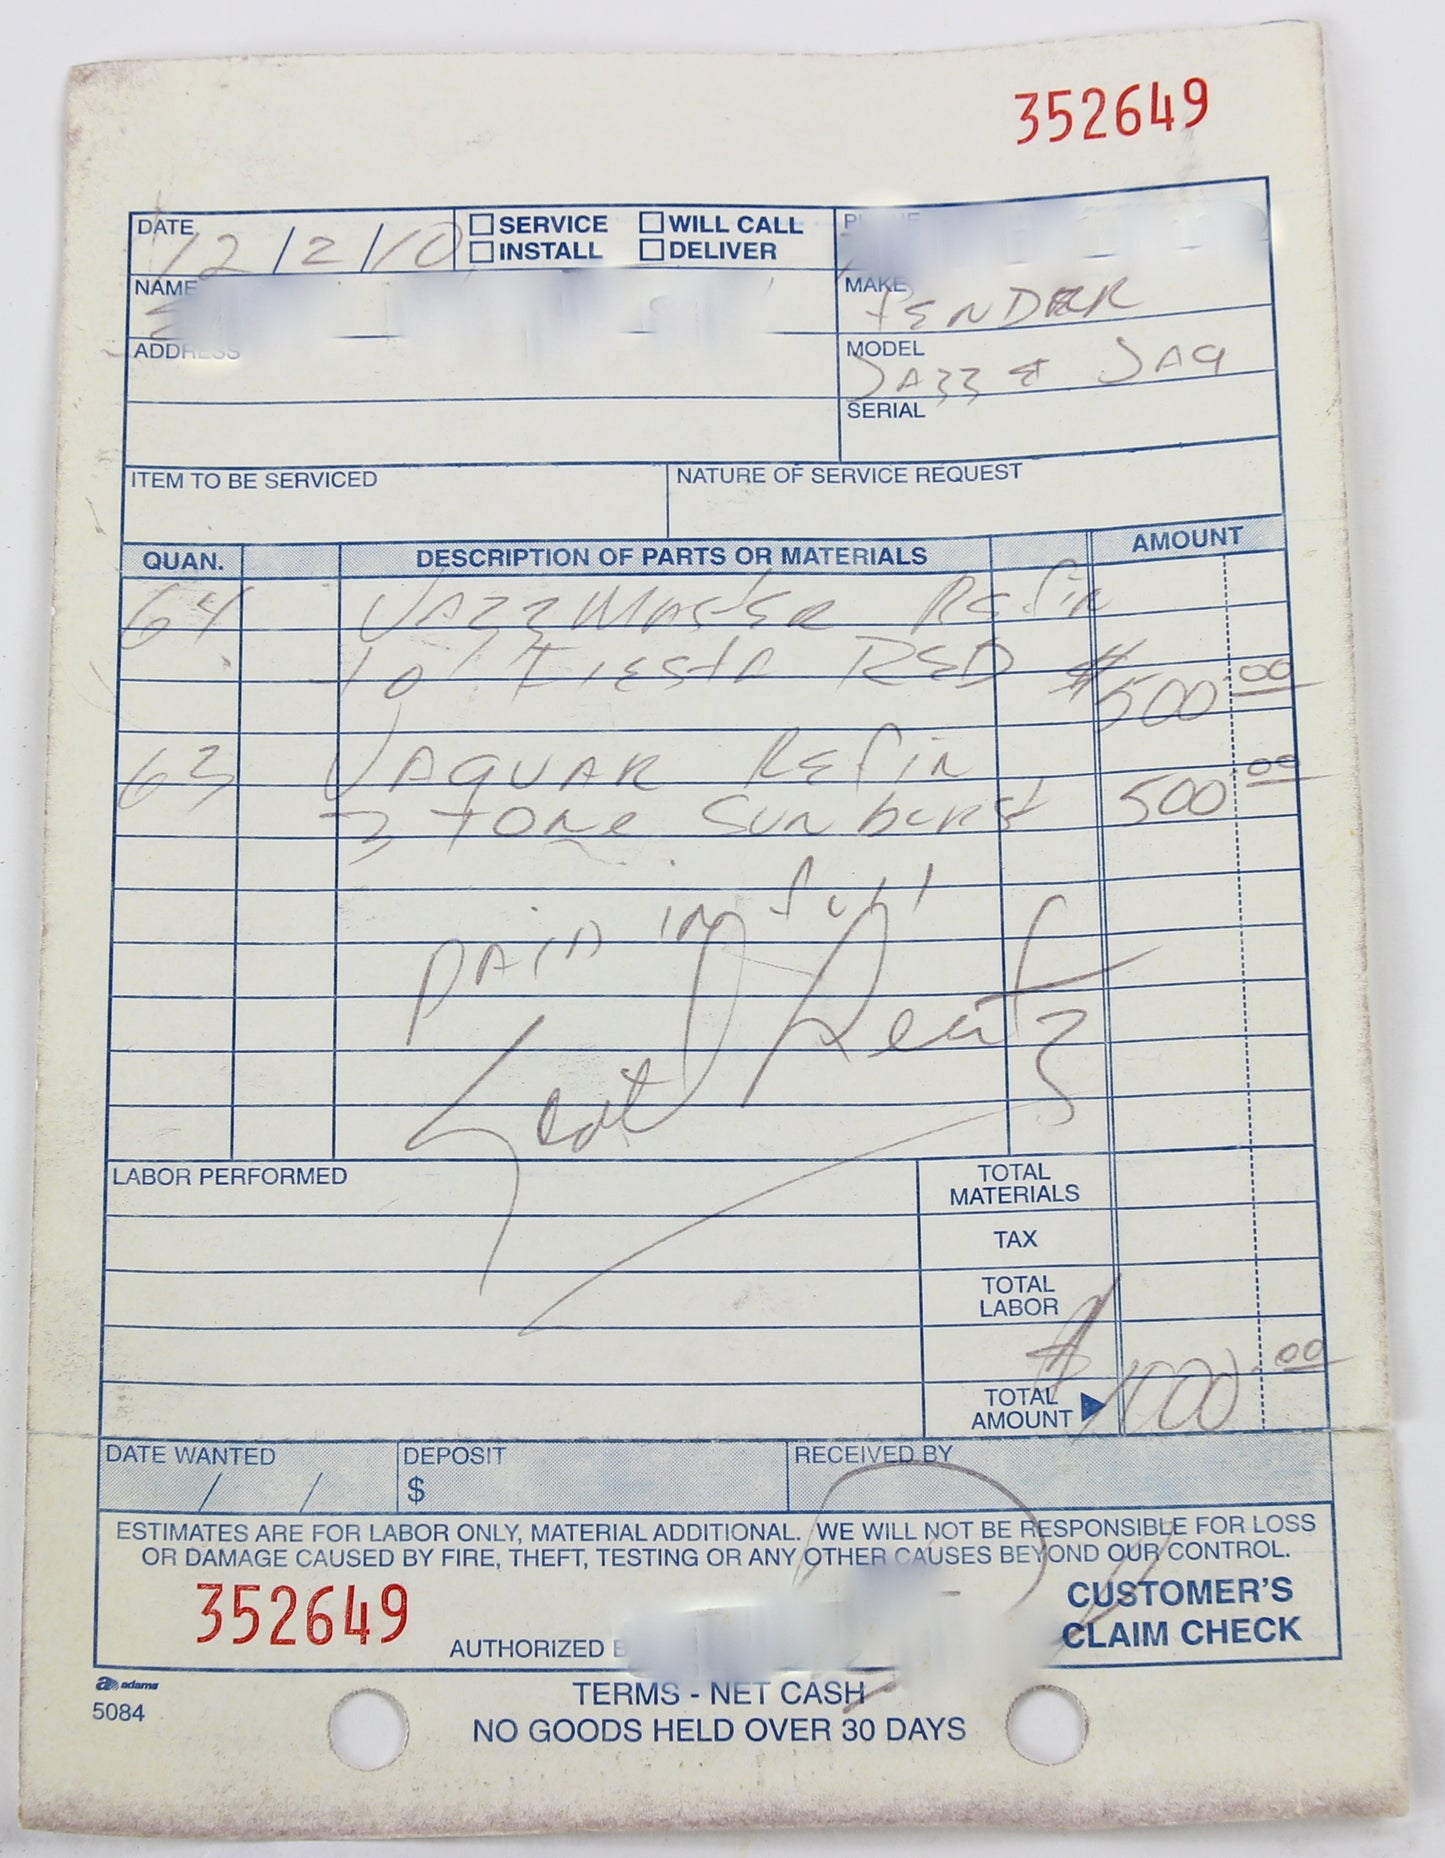 352649
DATE 12/2/10 SERVICE WILL CALL
INSTALL DELIVER
NAME MAKE FENDER
ADDRESS MODEL JAZZ & JAG
SERIAL
ITEM TO BE SERVICED NATURE OF SERVICE REQUEST
QUAN. DESCRIPTION OF PARTS OR MATERIALS AMOUNT
64 JAZZMASTER REFIN
to FIESTA RED $500.00
63 JAGUAR REFIN
3 TONE SUNBURST 500.00
PAID IN full
LABOR PERFORMED TOTAL MATERIALS
TAX
TOTAL LABOR
TOTAL AMOUNT $1000.00
DATE WANTED / / DEPOSIT $ RECEIVED BY
ESTIMATES ARE FOR LABOR ONLY, MATERIAL ADDITIONAL. WE WILL NOT BE RESPONSIBLE FOR LOSS
OR DAMAGE CAUSED BY FIRE, THEFT, TESTING OR ANY OTHER CAUSES BEYOND OUR CONTROL.
352649 CUSTOMER'S
AUTHORIZED CLAIM CHECK
adams
5084
TERMS - NET CASH
NO GOODS HELD OVER 30 DAYS